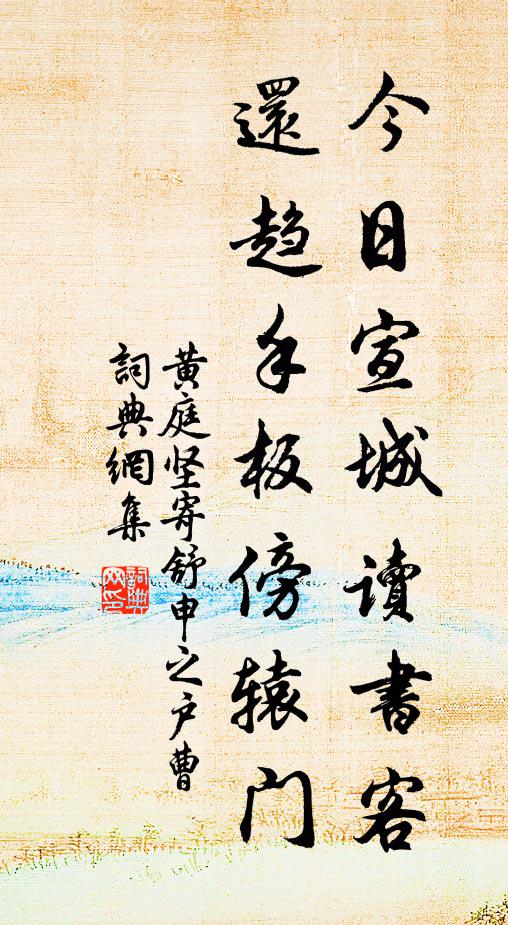 今日宣城讀書客
還趋手板傍辕门
黄庭坚寄舒申之户曹
詞典網集
詞典網印